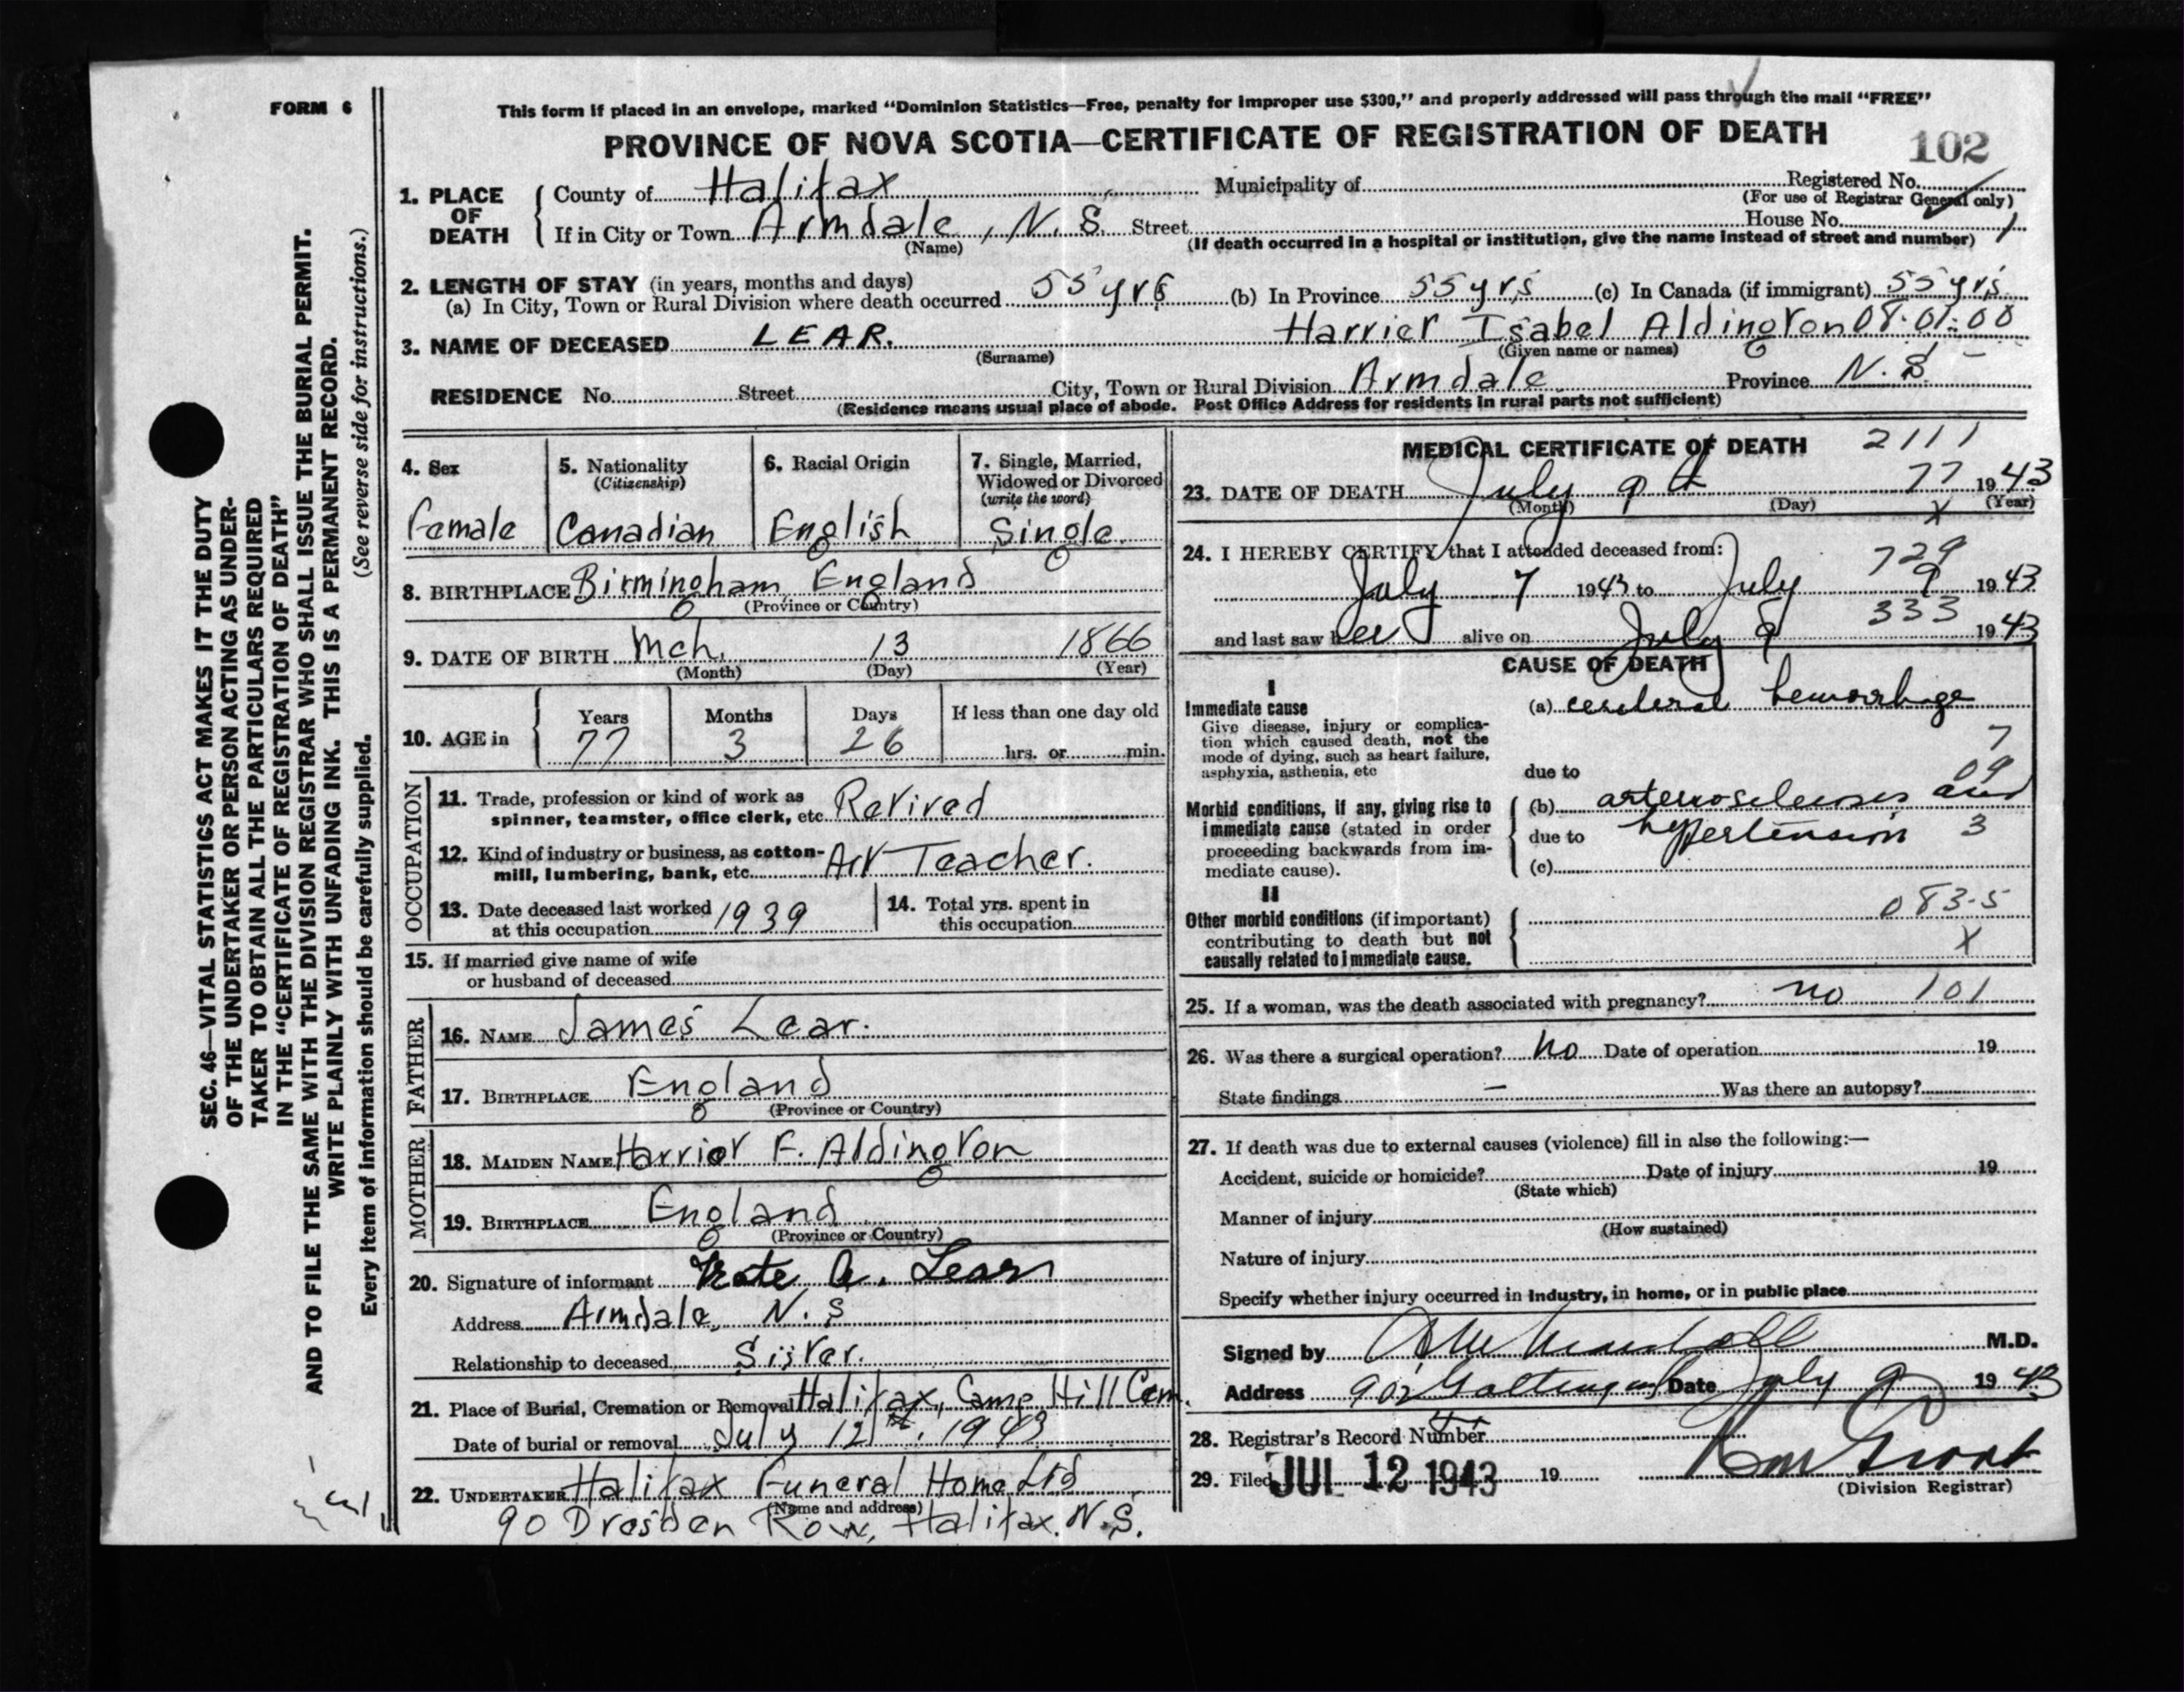 FORM 6
This form if placed in an envelope, marked “Dominion Statistics—Free, penalty for improper use $300,” and properly addressed will pass through the mail “FREE”
PROVINCE OF NOVA SCOTIA—CERTIFICATE OF REGISTRATION OF DEATH
102
1. PLACE OF DEATH
County of Halifax Municipality of Registered No.
(For use of Registrar General only)
If in City or Town Armdale, N. S. Street House No. 1
(Name) (If death occurred in a hospital or institution, give the name instead of street and number)
2. LENGTH OF STAY (in years, months and days)
(a) In City, Town or Rural Division where death occurred 55 yrs (b) In Province 55 yrs (c) In Canada (if immigrant) 55 yrs
3. NAME OF DECEASED LEAR. Harriet Isabel Aldington 08.01:00
(Surname) (Given name or names)
RESIDENCE No. Street City, Town or Rural Division Armdale Province N. S.
(Residence means usual place of abode. Post Office Address for residents in rural parts not sufficient)
SEC. 46—VITAL STATISTICS ACT MAKES IT THE DUTY
OF THE UNDERTAKER OR PERSON ACTING AS UNDER-
TAKER TO OBTAIN ALL THE PARTICULARS REQUIRED
IN THE “CERTIFICATE OF REGISTRATION OF DEATH”
AND TO FILE THE SAME WITH THE DIVISION REGISTRAR WHO SHALL ISSUE THE BURIAL PERMIT.
WRITE PLAINLY WITH UNFADING INK. THIS IS A PERMANENT RECORD.
(See reverse side for instructions.)
Every item of information should be carefully supplied.
4. Sex
Female
5. Nationality
(Citizenship)
Canadian
6. Racial Origin
English
7. Single, Married,
Widowed or Divorced
(write the word)
Single.
8. BIRTHPLACE Birmingham, England
(Province or Country)
9. DATE OF BIRTH Mch. 13 1866
(Month) (Day) (Year)
10. AGE in
Years Months Days If less than one day old
77 3 26 hrs. or min.
OCCUPATION
11. Trade, profession or kind of work as
spinner, teamster, office clerk, etc. Retired
12. Kind of industry or business, as cotton-
mill, lumbering, bank, etc. Art Teacher.
13. Date deceased last worked
at this occupation 1939
14. Total yrs. spent in
this occupation
15. If married give name of wife
or husband of deceased
FATHER
16. NAME James Lear.
17. BIRTHPLACE England
(Province or Country)
MOTHER
18. MAIDEN NAME Harriet F. Aldington
19. BIRTHPLACE England
(Province or Country)
20. Signature of informant Kate A. Lear
Address Armdale, N. S
Relationship to deceased Sister.
21. Place of Burial, Cremation or Removal Halifax, Camp Hill Cem.
Date of burial or removal July 12, 1943
22. UNDERTAKER Halifax Funeral Home Ltd
(Name and address)
90 Dresden Row, Halifax. N.S.
MEDICAL CERTIFICATE OF DEATH 2111
23. DATE OF DEATH July 9th 77 1943
(Month) (Day) (Year)
X
24. I HEREBY CERTIFY that I attended deceased from:
729
July 7 1943 to July 9 1943
333
and last saw her alive on July 9 1943
CAUSE OF DEATH
I
Immediate cause
Give disease, injury or complica-
tion which caused death, not the
mode of dying, such as heart failure,
asphyxia, asthenia, etc
(a) cerebral hemorrhage
7
09
due to
Morbid conditions, if any, giving rise to
immediate cause (stated in order
proceeding backwards from im-
mediate cause).
(b) arteriosclerosis and
due to hypertension 3
(c)
II
Other morbid conditions (if important)
contributing to death but not
causally related to immediate cause.
083-5
X
25. If a woman, was the death associated with pregnancy? no 101
26. Was there a surgical operation? No Date of operation 19
State findings — Was there an autopsy?
27. If death was due to external causes (violence) fill in also the following:—
Accident, suicide or homicide? Date of injury 19
(State which)
Manner of injury
(How sustained)
Nature of injury
Specify whether injury occurred in industry, in home, or in public place
Signed by M.D.
Address Date July 9 1943
28. Registrar's Record Number
29. Filed JUL 12 1943 19
(Division Registrar)